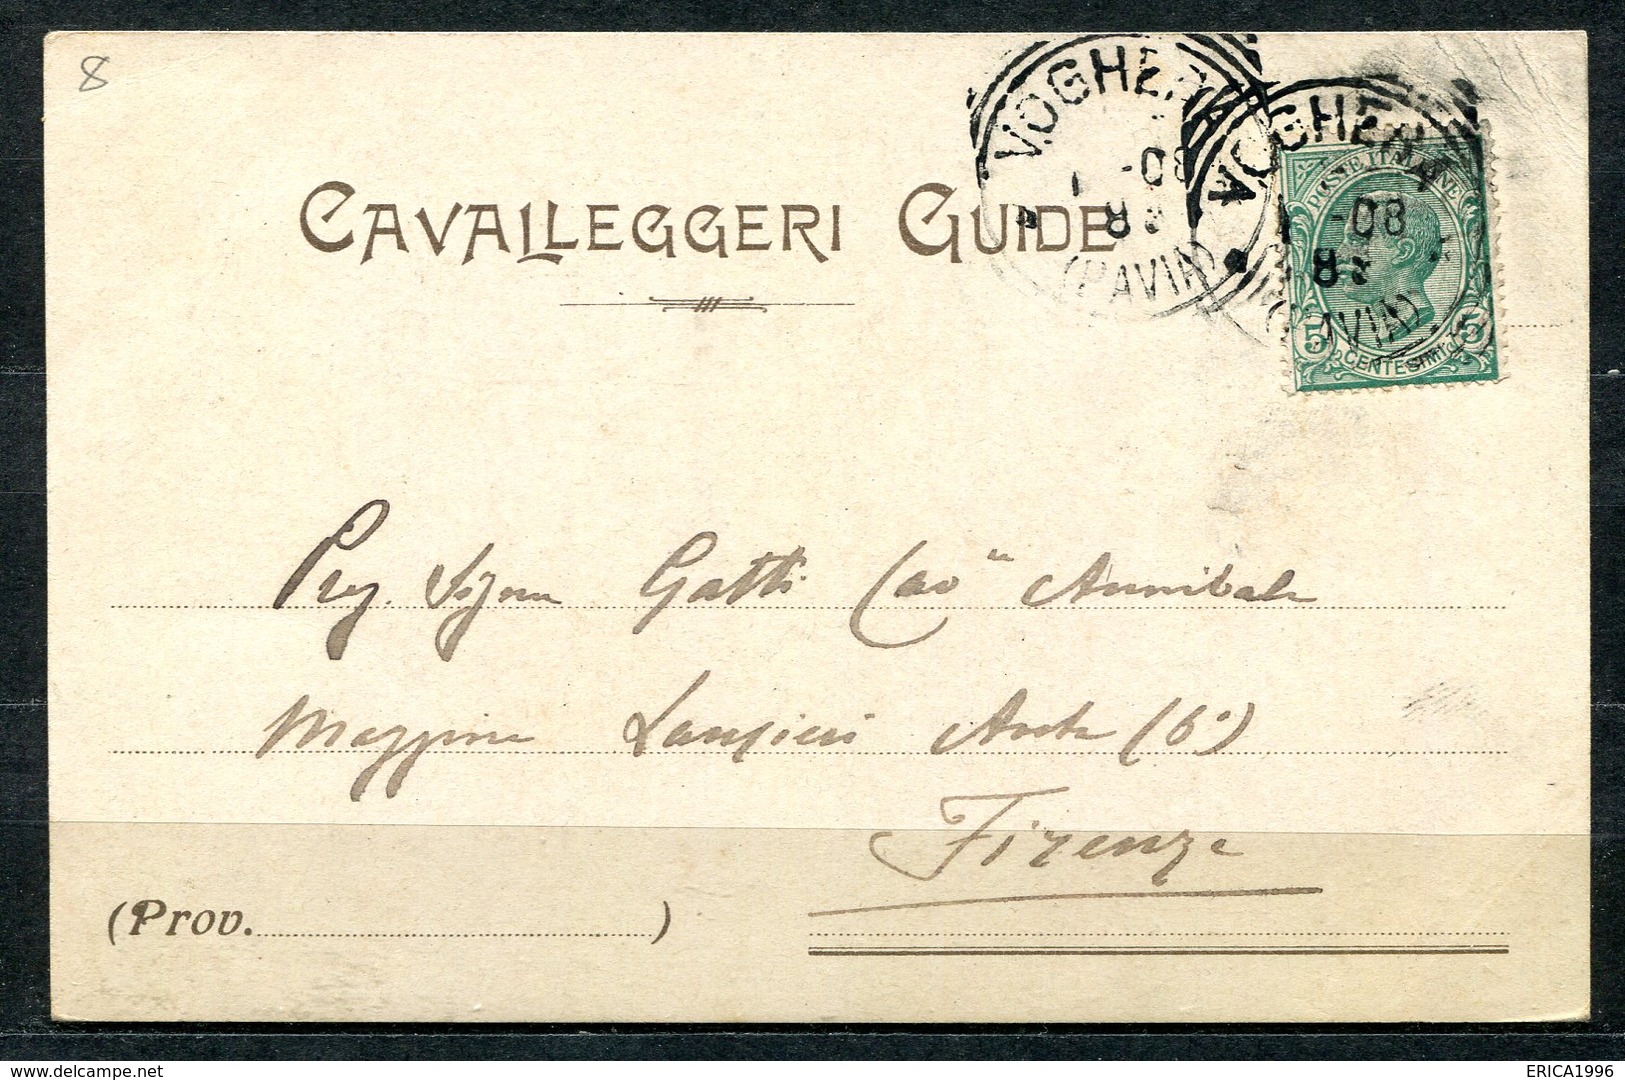 8
CAVALLEGGERI GUIDE
VOGHERA
1 -08
8
(PAVIA)
VOGHERA
1 -08
8
(PAVIA)
POSTE ITALIANE
5 CENTESIMI 5
Preg. Signor Gatti Cav Annibale
Lansieri (6°)
Firenze
(Prov. )
ERICA1996